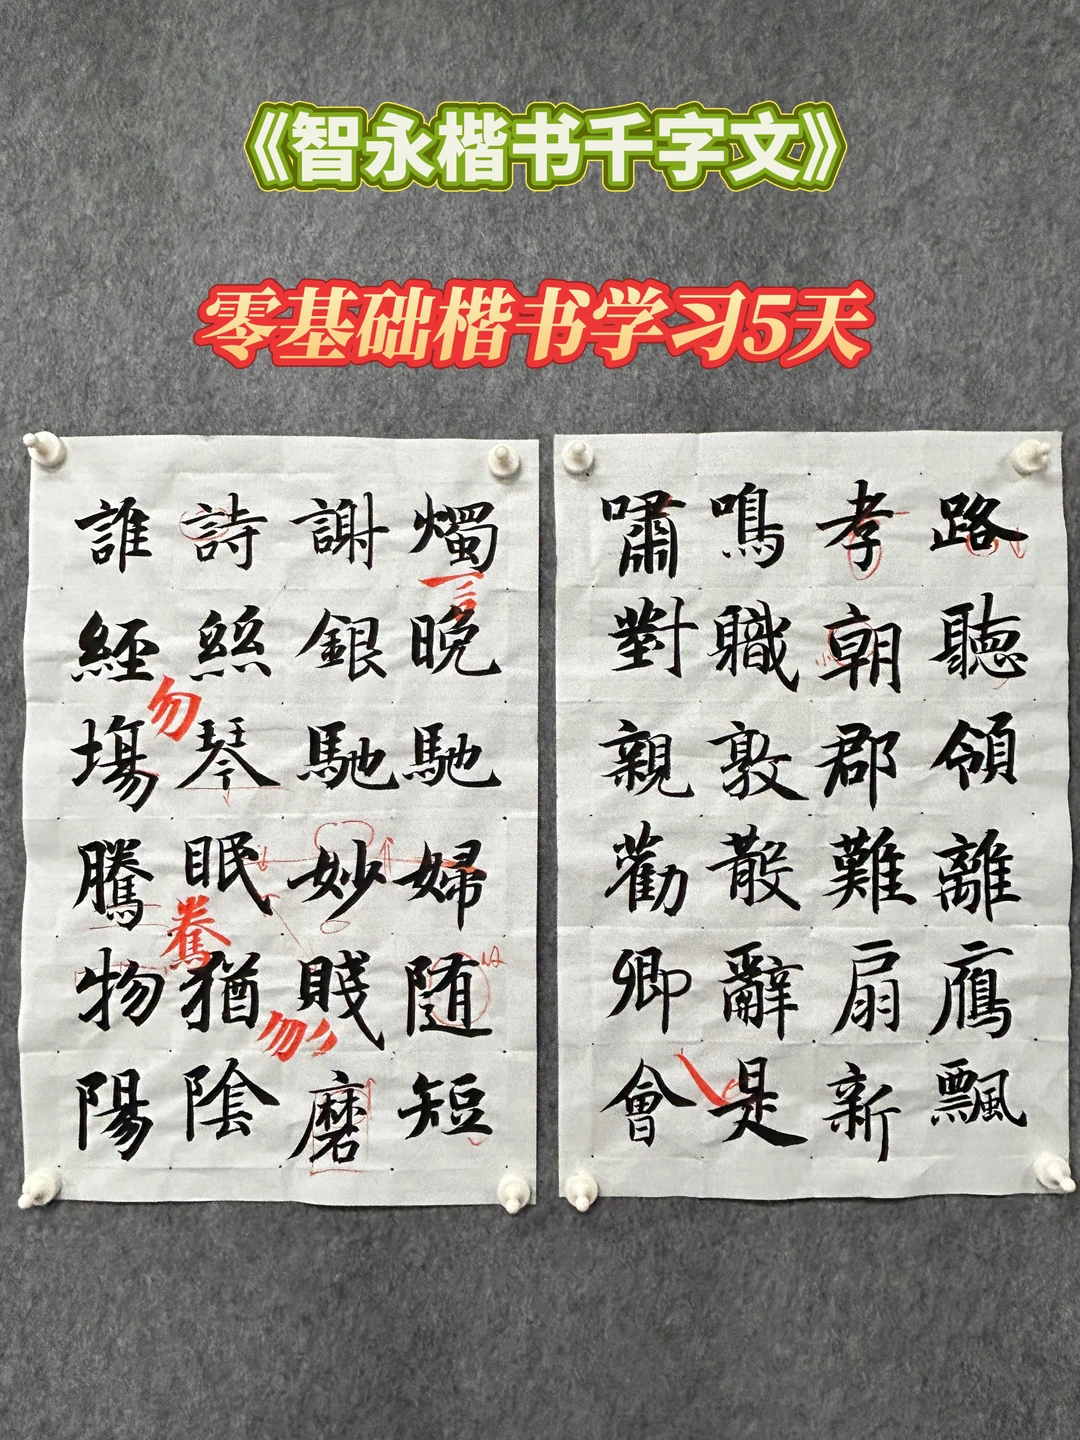 《智永楷书千字文》
零基础楷书学习5天
誰詩謝燭
經絲銀晚
塲琴馳馳
騰眠妙婦
物猶賤随
陽陰磨短
言
勿
勿
嘯鳴孝路
對職朝聽
親敦郡領
勸散難離
卿辭扇鴈
會是新飄